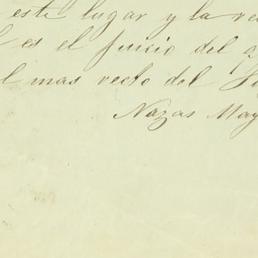 este lugar y la re
es el juicio del
l mas recto del
Nazas May